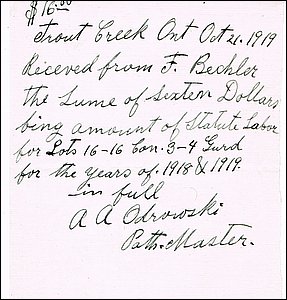 $16.00
Trout Creek Ont Oct 21. 1919
Receved from F. Bechler
the Sume of Sexten Dollars
being amount of Statute Labor
for Lots 16-16 Con. 3-4 Gurd
for the years of. 1918 & 1919.
in full
A A Odrowski
Path-Master.